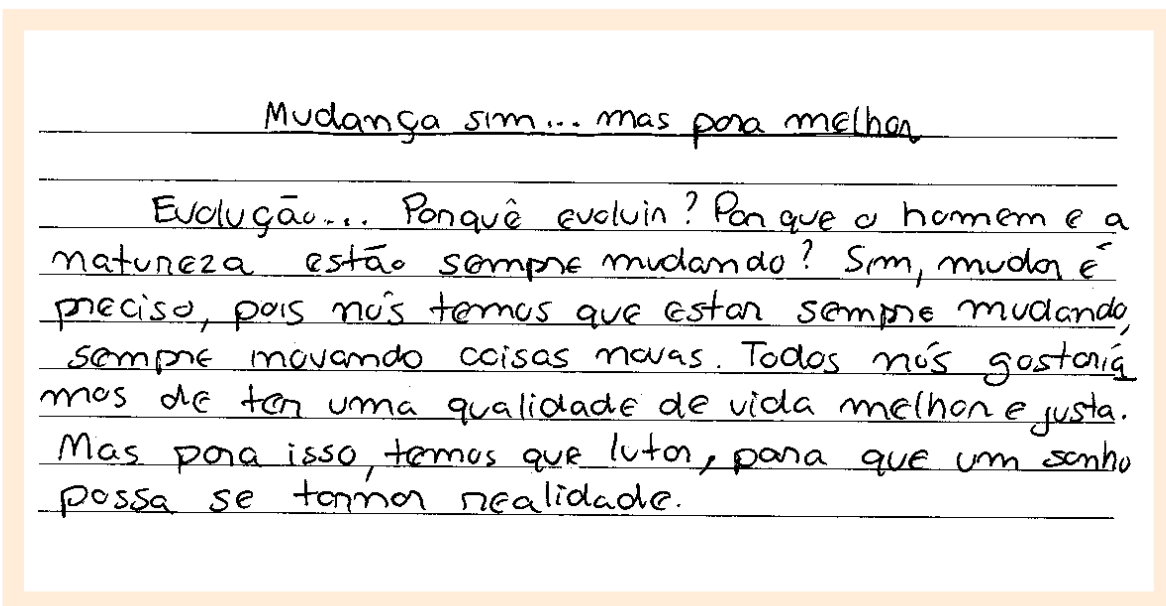 Mudança sim... mas para melhor
Evolução... Porquê evoluir? Por que o homem e a
natureza estão sempre mudando? Sim, mudar é
preciso, pois nós temos que estar sempre mudando,
sempre inovando coisas novas. Todos nós gostaria
mos de ter uma qualidade de vida melhor e justa.
Mas para isso, temos que lutar, para que um sonho
possa se tornar realidade.